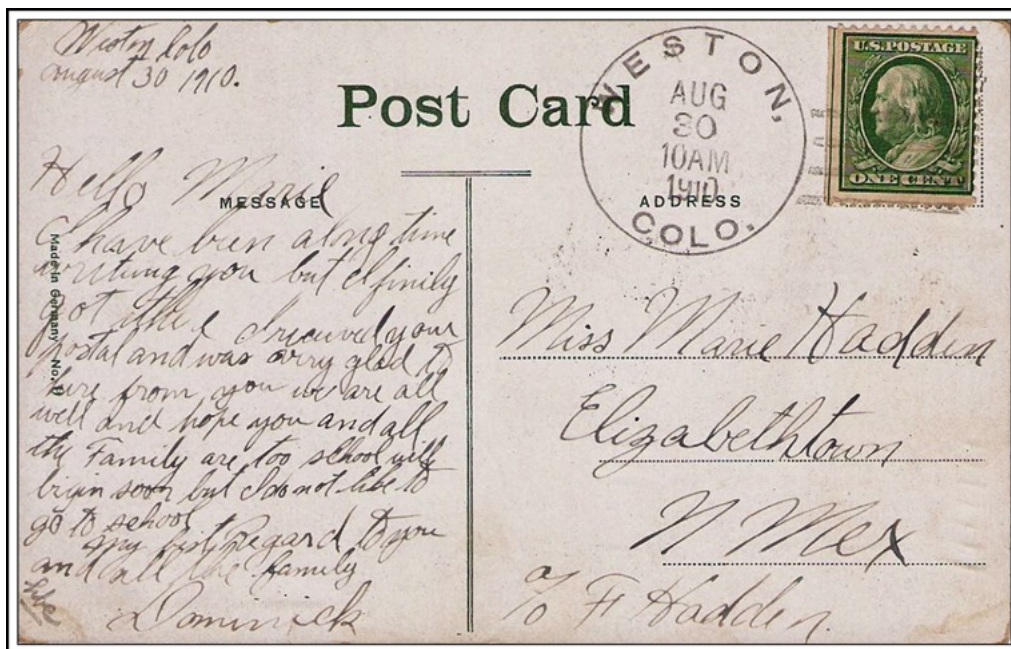 Weston Colo
August 30 1910.
Post Card
WESTON,
AUG
30
10AM
1910
COLO.
U.S. POSTAGE
ONE CENT
MESSAGE
ADDRESS
Made in Germany No.
Hello Marie
I have been along time
writing you but I finily
got there I received your
postal and was very glad to
here from you we are all
well and hope you and all
the Family are too school will
begin soon but I do not like to
go to school
my best Regard to you
and all the family
Dominick
Miss Marie Hadden
Elizabethtown
N Mex
c/o F Hadden.